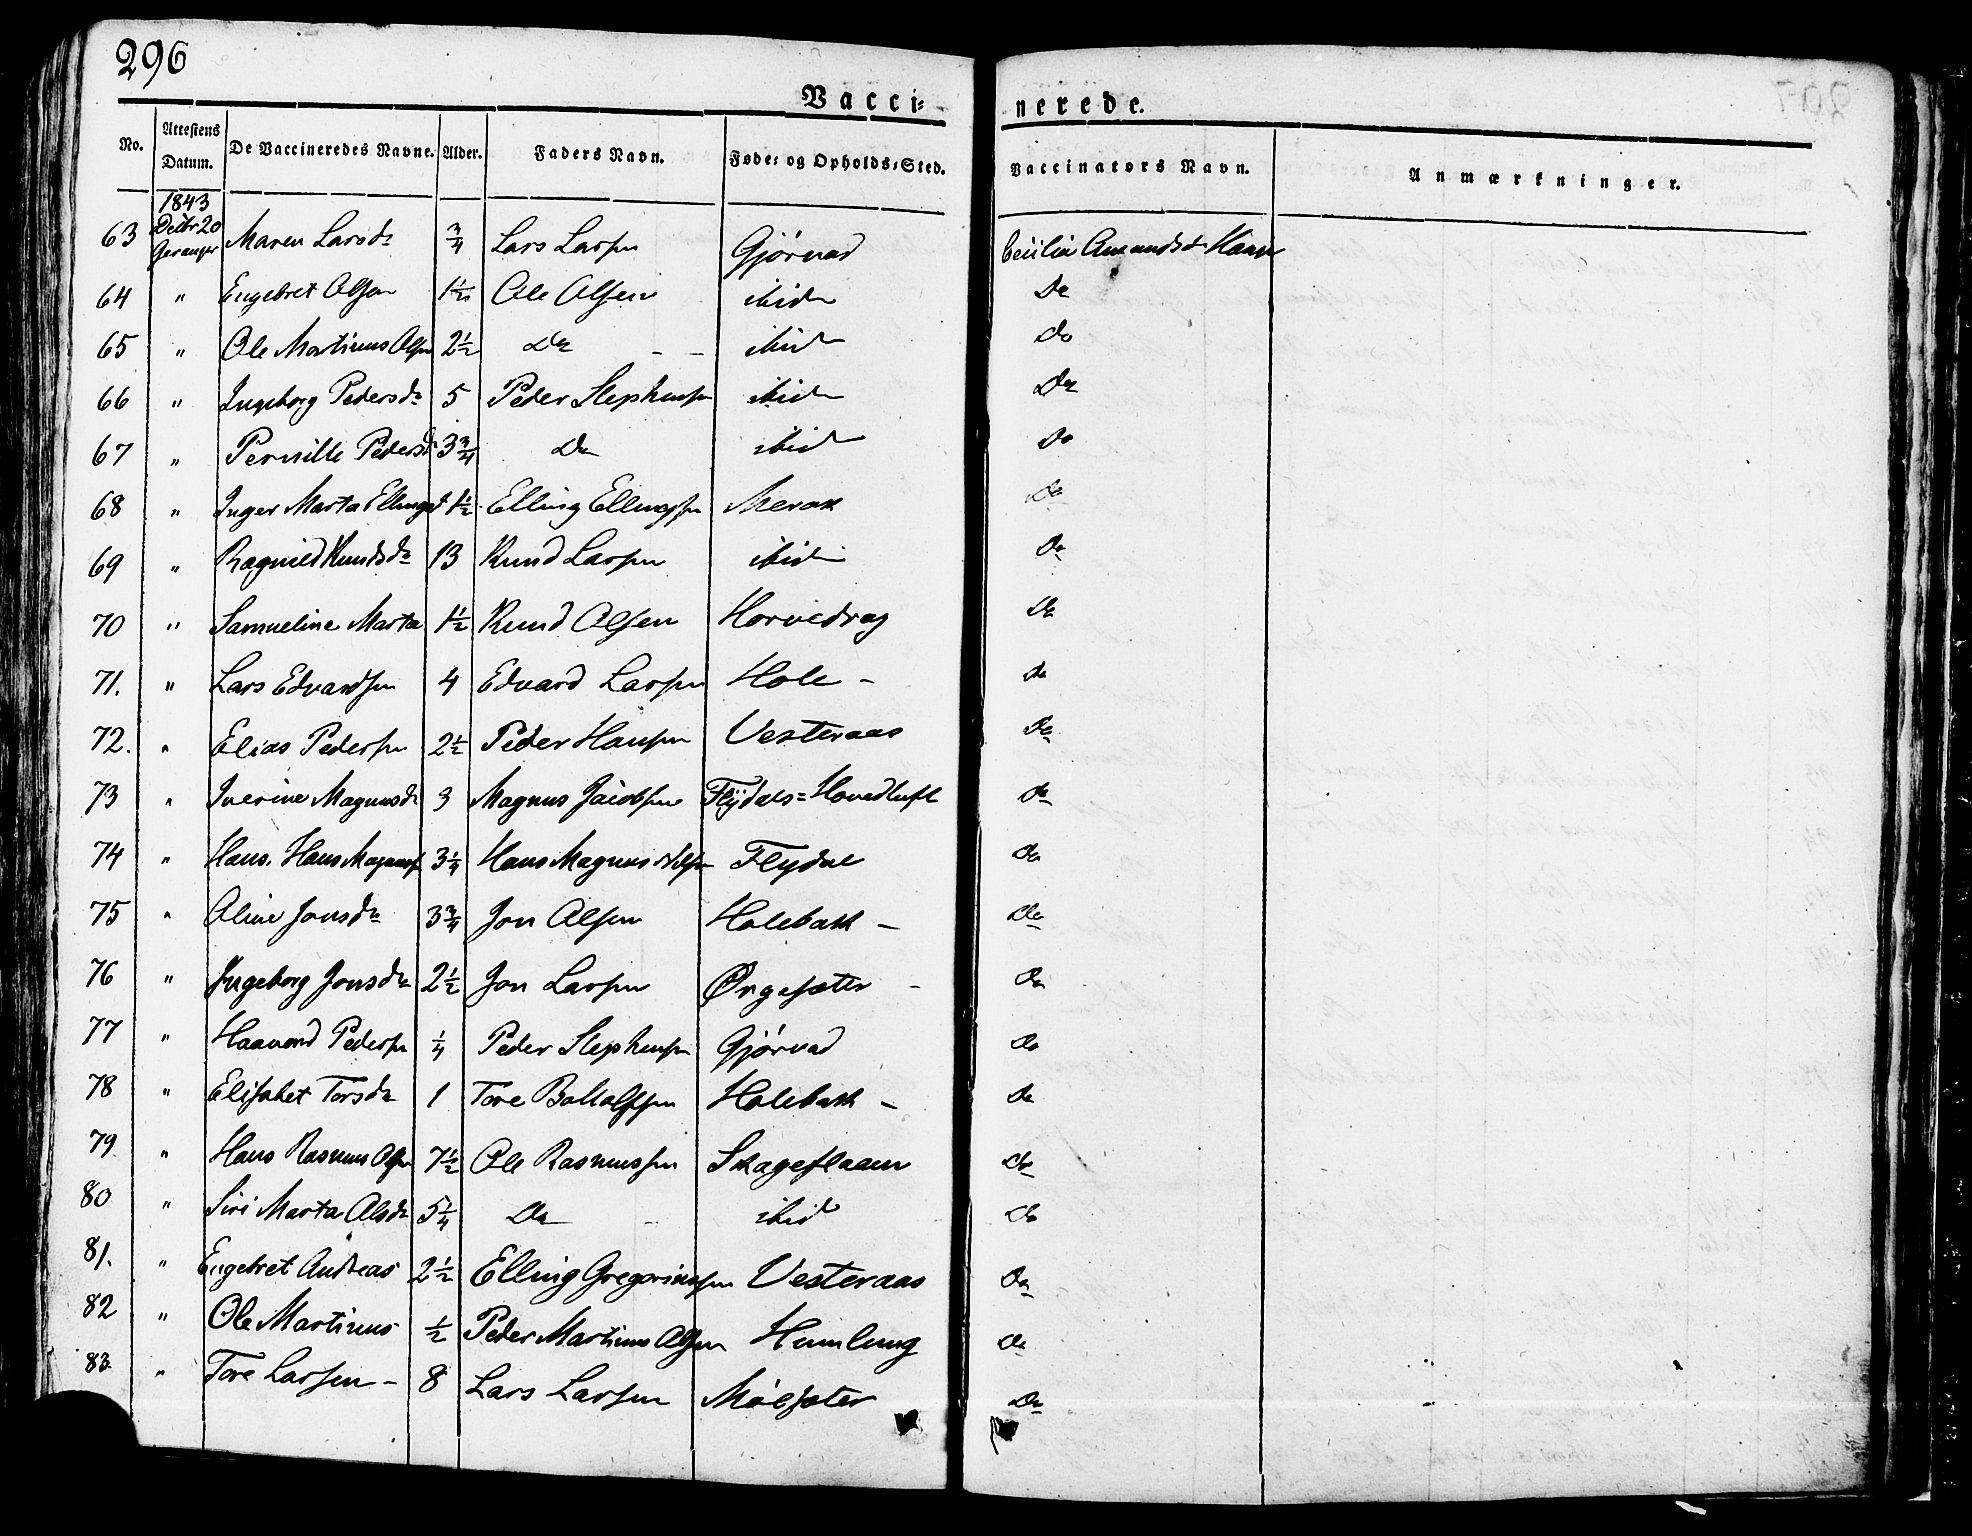 296
Vacci= nerede.
No. Attestens Datum. De Vaccineredes Navne. Alder. Faders Navn. Føde= og Opholds=Sted. Vaccinators Navn. Anmærkninger.
1843
Decbr 20
Geranger
63 Maren Larsdr 3/4 Lars Larsen Gjørvad Cecilia Amundsdr
64 " Engebret Olsen 1 1/2 Ole Olsen ibid Do
65 " Ole Martinus Olsen 2 1/2 Do - - ibid Do
66 " Ingeborg Pedersdr 5 Peder Stephensen ibid Do
67 " Pernille Pedersd 3 3/4 Do ibid Do
68 " Inger Marta Ellingsd 1 1/2 Elling Ellingsen Merok Do
69 " Ragnild Knudsdr 13 Knud Larsen ibid Do
70 " Samueline Marta 1 1/2 Knud Olsen Horvedrag Do
71. " Lars Edvardsen 4 Edvard Larsen Hole - Do
72. " Elias Pedersen 2 1/2 Peder Hansen Vesteraas Do
73 " Iverine Magnusdr 3 Magnus Jacobsen Flÿdals= Do
74 " Hans. Hans Magnusn 3 1/4 Hans Magnus Flydal Do
75 " Oline Jonsdr 3 3/4 Jon Olsen Holebakk - Do
76 " Ingeborg Jonsdr 2 1/2 Jon Larsen Ørgesæter - Do
77 " Haavard Pedersen 1/4 Peder Stephensen Gjørvad Do
78 " Elisabet Torsdr 1 Tore Bottolfsen Holebakk - Do
79 " Hans Rasmus Olsen 7 1/2 Ole Rasmussen Skageflaaen Do
80 " Siri Marta Olsdr 5 1/4 Do - ibid Do
81. " Engebret Andreas 2 1/2 Elling Gregoriussen Vesteraas Do
82 " Ole Martinus 1/2 Peder Martinus Olsen Humlung Do
83. " Tore Larsen - 8 Lars Larsen Mølsæter Do